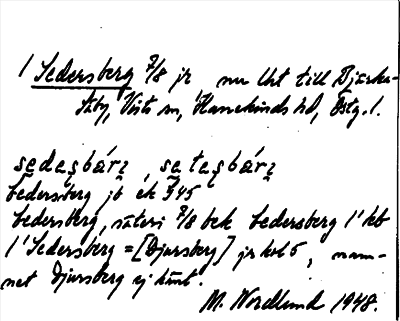 1 Sedersberg 7/8 jr nu lht till Djurke-
täby, Vists sn, Hanekinds hd, Östg. l.
sedesbárz, setesbárz
Sedersberg jb ek 545
Sedersberg, säteri 7/8 bek Sedersberg 1' kb
1' Sedersberg = [Djursberg] jr kol 5, nam-
net Djursberg ej känt.
M. Nordlund 1948.